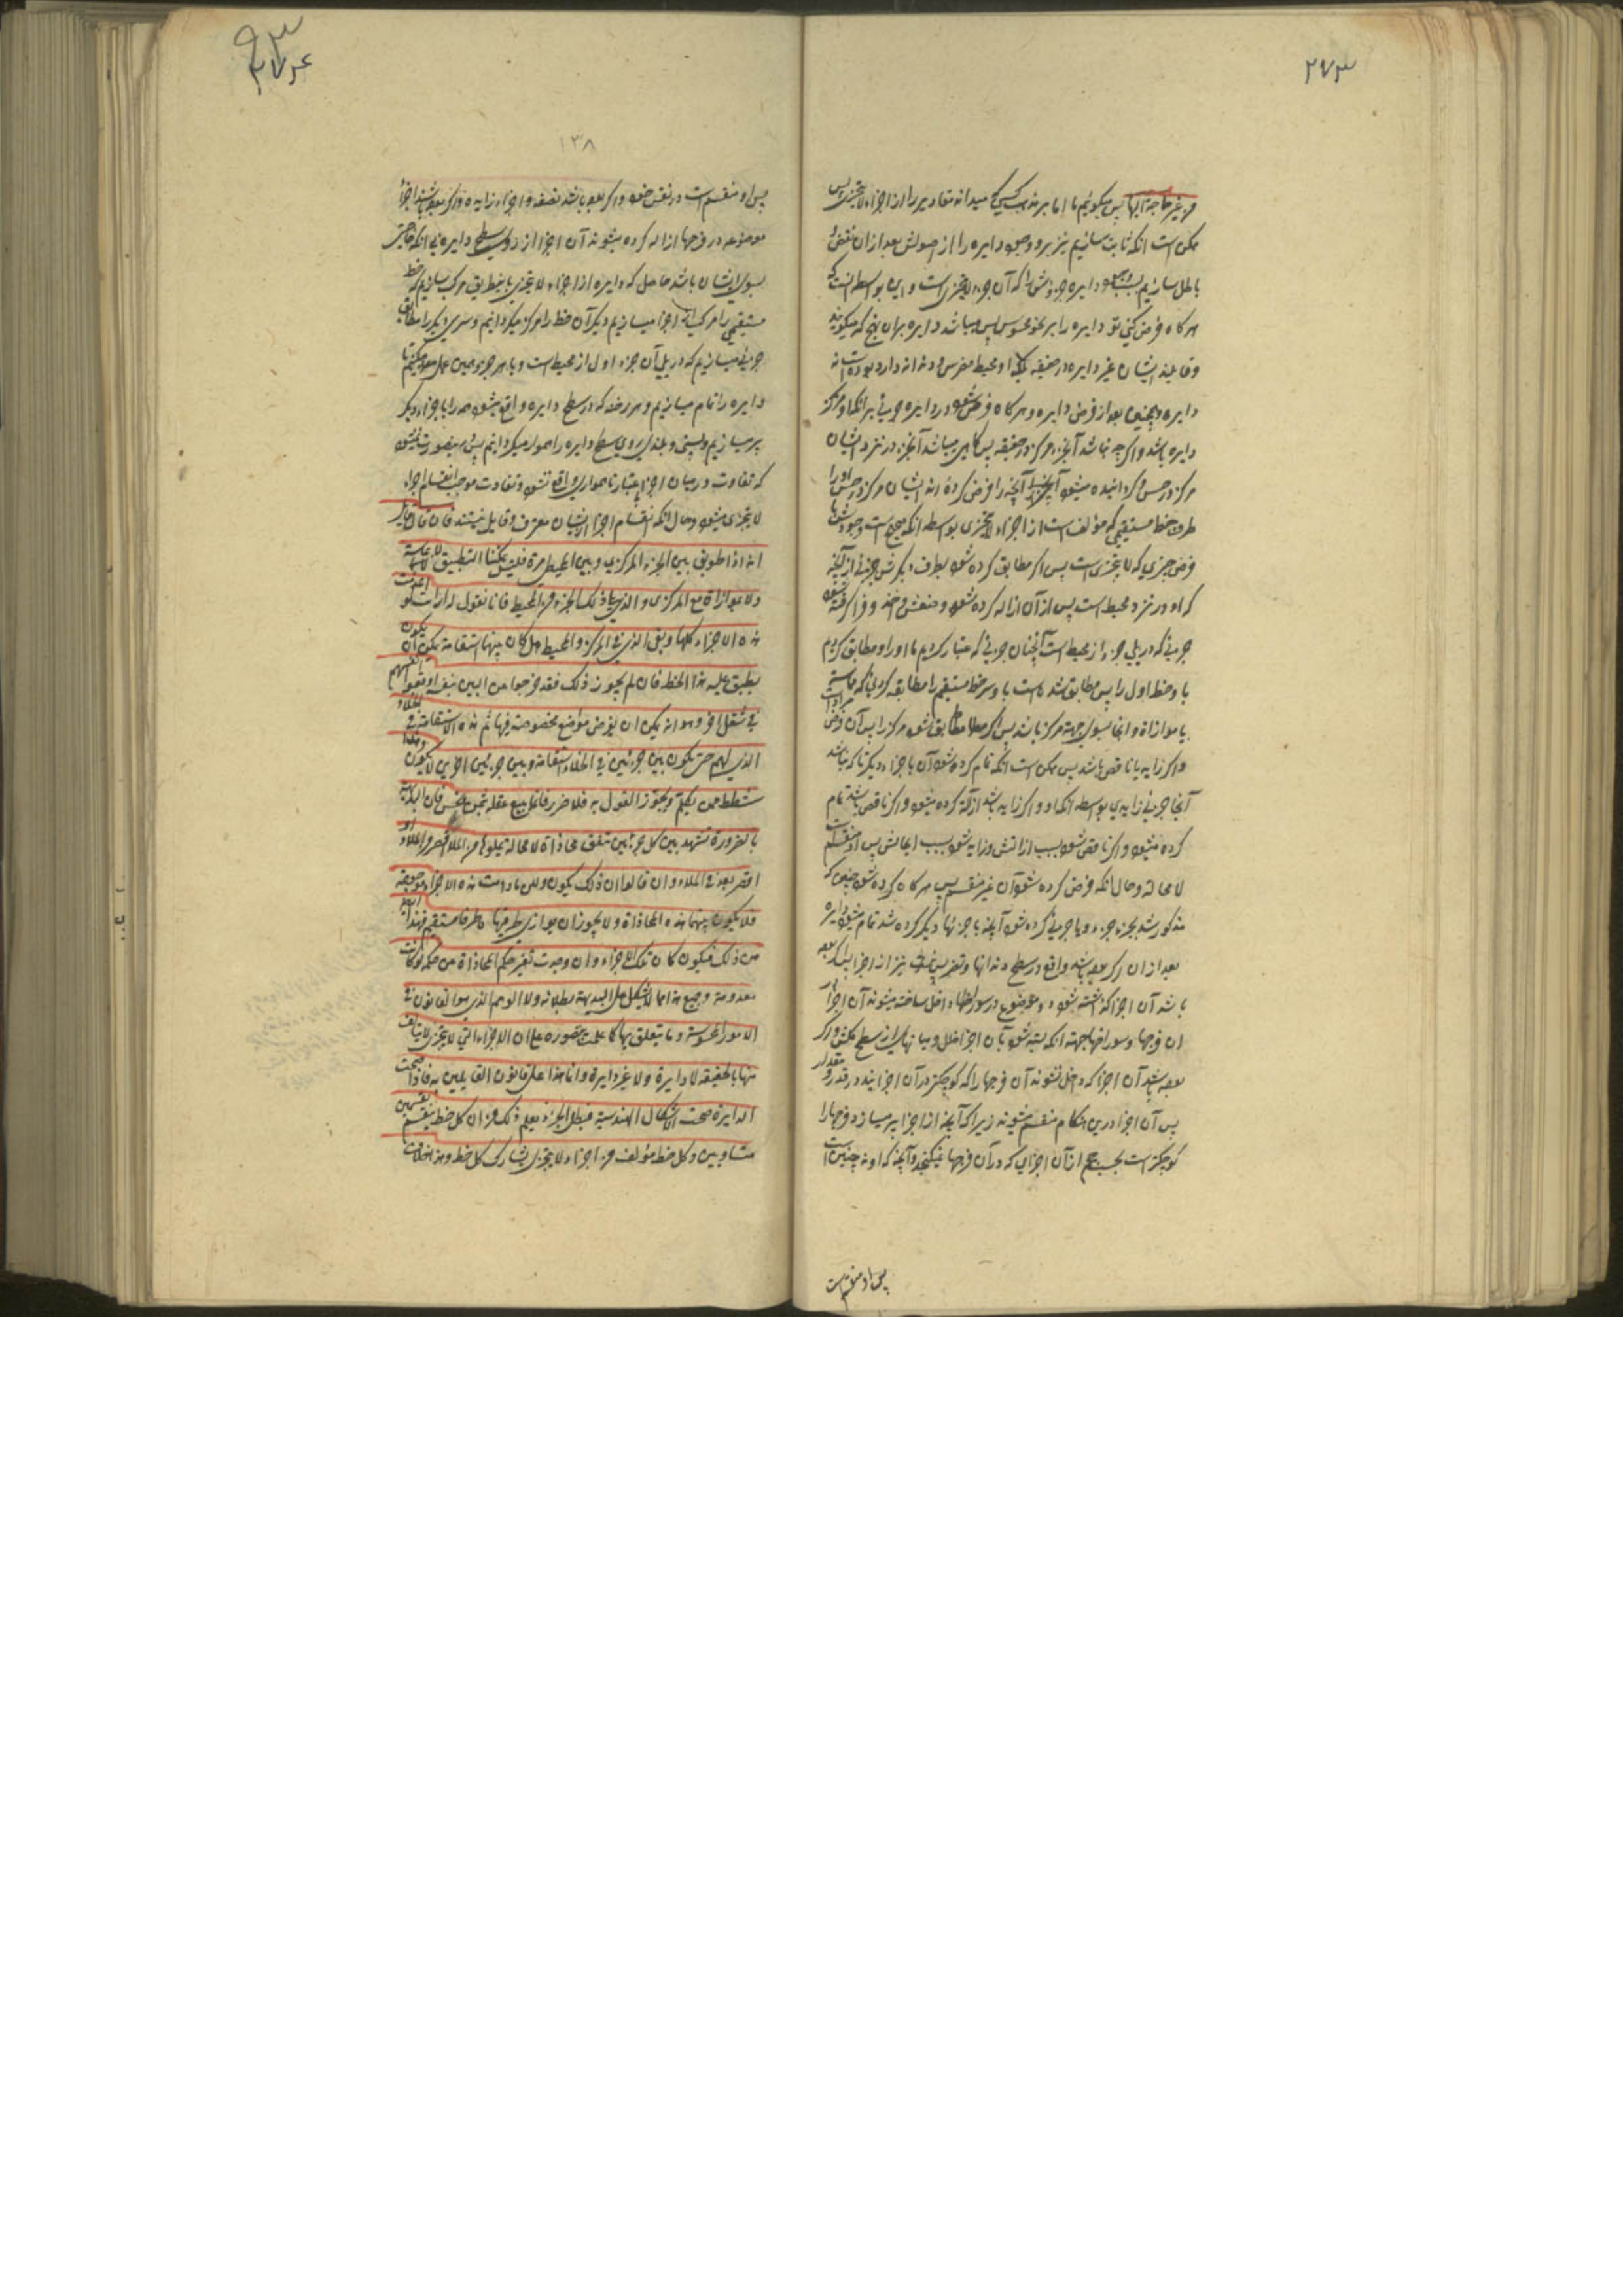 ۲۷۳
من غیر حاجة الیها پس میگوئیم ما اما بر مذهب کسی که میداند مقادیر را از اجزاء لا یتجزی پس
ممکن است آنکه ثابت سازیم نیز برو وجود دایره را از اصولش بعد از آن نقض
باطل سازیم بسبب وجود دایره جزوش را که آن جزء لا یتجزی است و این بواسطه آنست که
هر گاه فرض کنی تو دایره را بر نحو محسوس پس میباشد دایره بر آن نهج که میگویند
وقایلند ایشان غیر دایره در حقیقه بلکه او محیط مضرس دندانه دارد بوده است نه
دایره و همچنین بعد از فرض دایره و هر گاه فرض شود در دایره جزئی بر آنکه او مرکز
دایره باشد و اگر چه نباشد آنجزء مرکز در حقیقه پس گاهی میباشد آنجزء در نزد ایشان
مرکز در حس و گردانیده میشود آنچه را فرض کرده اند ایشان مرکز در حس او را
طرف خط مستقیمی که مؤلف است از اجزاء لا یتجزی بواسطه آنکه صحیح است وجودش با
فرض جزئی که لا یتجزی است پس اگر مطابق کرده شود بطرف دیگرش جزئی از آنچه
که او در نزد محیط است پس از آن ازاله کرده شود وضعش و اخذ و فرا گرفته شود
جزئی که در پهلی جزء از محیط است آنچنان جزئی که اعتبار کردیم ما او را و مطابق کردیم
با و خط اول را پس مطابق شده است با و سر خط مستقیم را مطابقه کردنی که مماسة
یا موازاة و انما بسوی جهة مرکز باشد پس اگر مطابق شود مرکز را پس آن فرض مراد است
و اگر زاید یا ناقص باشد پس ممکن است آنکه تمام کرده شود آن باجزاء دیگر تا که نباشد
آنجا جزئی زایدی بواسطه آنکه او اگر زاید باشد ازاله کرده میشود و اگر ناقص باشد تمام
کرده میشود و اگر ناقص شود بسبب ازالتش و زاید شود بسبب الحاقش پس او منقسم است
لا محاله و حال آنکه فرض کرده شود آن غیر منقسم پس هر گاه کرده شود چنین که
مذکور شد بجزء جزء و با جزئی کرده شود آنچه با جزئها دیگر کرده شد تمام میشود دایره
بعد از آن اگر بوده باشد واقع در سطح دندانها و تضریس نیز از اجزا پس اگر بوده
باشد آن اجزا گذاشته شود و موضوع در سوراخها داخل ساخته میشوند آن اجزا در
آن فرجها و سوراخها جهة آنکه بسته شود بآن اجزا خلل و میانهای از سطح مکشوف و اگر
بوده باشد آن اجزا که داخل نشوند آن فرجها را که کوچکتر از آن اجزایند در قدر و مقدار
پس آن اجزا درین هنگام منقسم میشوند زیرا که آنچه از اجزا پر میسازد فرجها را
کوچکتر است بحسب حجم از آن اجزایی که در آن فرجها نمیگنجد و آنچه که او نه چنین است
پس او منقسم است
۹۳
۲۷۴
۱۳۸
پس او منقسم است در نفس خود و اگر بوده باشد نصفه و اجزاء زایده و اگر بوده باشند اجزاء
موضوعه در فرجها ازاله کرده میشوند آن اجزا از روی سطح دایره بی آنکه حاجتی
بسوی ایشان باشد حاصل که دایره از اجزاء لا یتجزی باینطریق مرکب سازیم که خط
مستقیمی را مرکب از اجزا میسازیم و یکسر آن خط را مرکز میگردانیم و سری دیگر را مطابق
جزئی میسازیم که در پهلی آن جزء اول از محیط است و با هر جزو همین عمل معمول میکنیم تا
دایره را تمام میسازیم و هر رخنه که در سطح دایره واقع میشود همه را باجزاء دیگر
پر میسازیم و پستی و بلندی روی سطح دایره را هموار میگردانیم پس درینصورت نمیشود
که تفاوت در میان اجزا باعتبار ناهمواری واقع نشود و تفاوت موجب انقسام اجزاء
لا یتجزی میشود و حال آنکه بانقسام اجزا ایشان معترف و قایل نیستند فان قال قایل
انه اذا طوبق بین الجزء المرکزی و بین المحیطی مرة فلیس یمکننا التطبیق لا مماسة
ولا موازاة مع المرکزی والذی یلی ذلک الجزء من المحیط فانا نقول له ارأیت لو اعدمت
هذه الاجزاء کلها و بقی الذی فی المرکز والمحیط هل کان بینهما استقامة یمکن ان یکون
یطبق علیه هذا الخط فان لم یجوز ذلک فقد خرجوا من البین بنفسه و اوقعوا انفسهم
فی شغل آخر وهو انه یمکن ان یفرض مواضع مخصوصة فیها تتم هذه الاستقامة فی الخلاء
الذی لهم حتی یکون بین جزئین فی الخلاء استقامة و بین جزئین آخرین لا یکون و هذا
شطط ممن یتکلفه و یجوز القول به فلا ضرر فانما یبیع عقله بثمن بخس فان البدیهة
بالضرورة تشهد ان بین کل جزئین یتفق محاذاة لا محالة یملؤها من الملاء اقصر الملاء او
اقصر بعد فی الملاء و ان قالوا ان ذلک یکون و لکن ما دامت هذه الاجزاء موجودة
فلا یکون بینهما هذه المحاذاة ولا یجوز ان یوازی طرفیها طرفا مستقیم فهذا ایضا
من ذلک فیکون کان تلک الاجزاء و ان وجدت تغیر حکم المحاذاة عن حکمه لو کانت
معدومة و جمیع هذا مما لا یشکل علی البدیهة بطلانه ولا الوهم الذی هو القانون فی
الامور المحسوسة و ما یتعلق بها کما علمت یتصوره علی ان الاجزاء التی لا یتجزی لا یتألف
منها بالحقیقه لا دایرة ولا غیر دایرة و انما هذا علی قانون القایلین به فاذا صحت
الدایرة صحت الاشکال الهندسیة فبطل الجزء و یعلم ذلک من ان کل خط ینقسم بقسمین
متساویین و کل خط مؤلف من اجزاء لا یتجزی یشارک کل خط و هذا خلاف